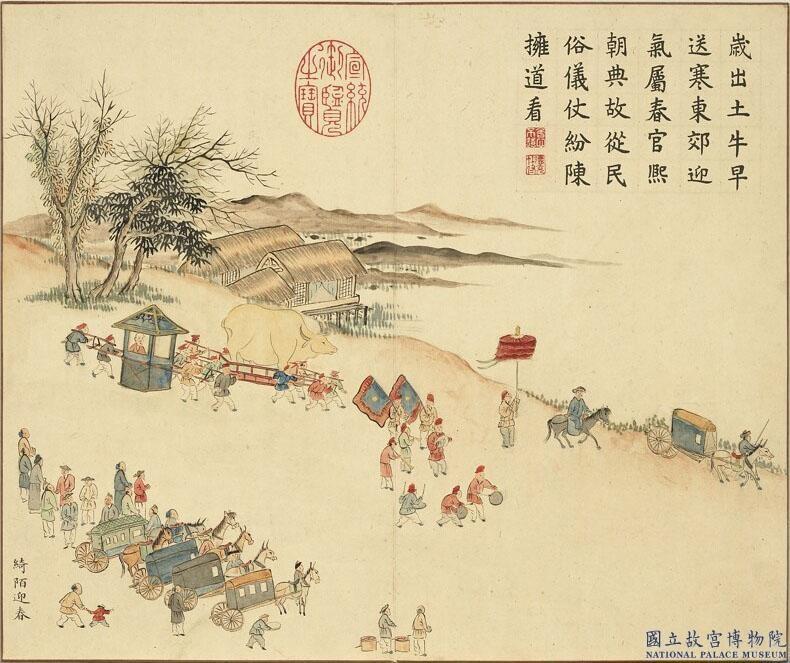 歲出土牛早
送寒東郊迎
氣屬春官熙
朝典故從民
俗儀仗紛陳
擁道看
宣統御覽之寶
綺陌迎春
國立故宮博物院
NATIONAL PALACE MUSEUM